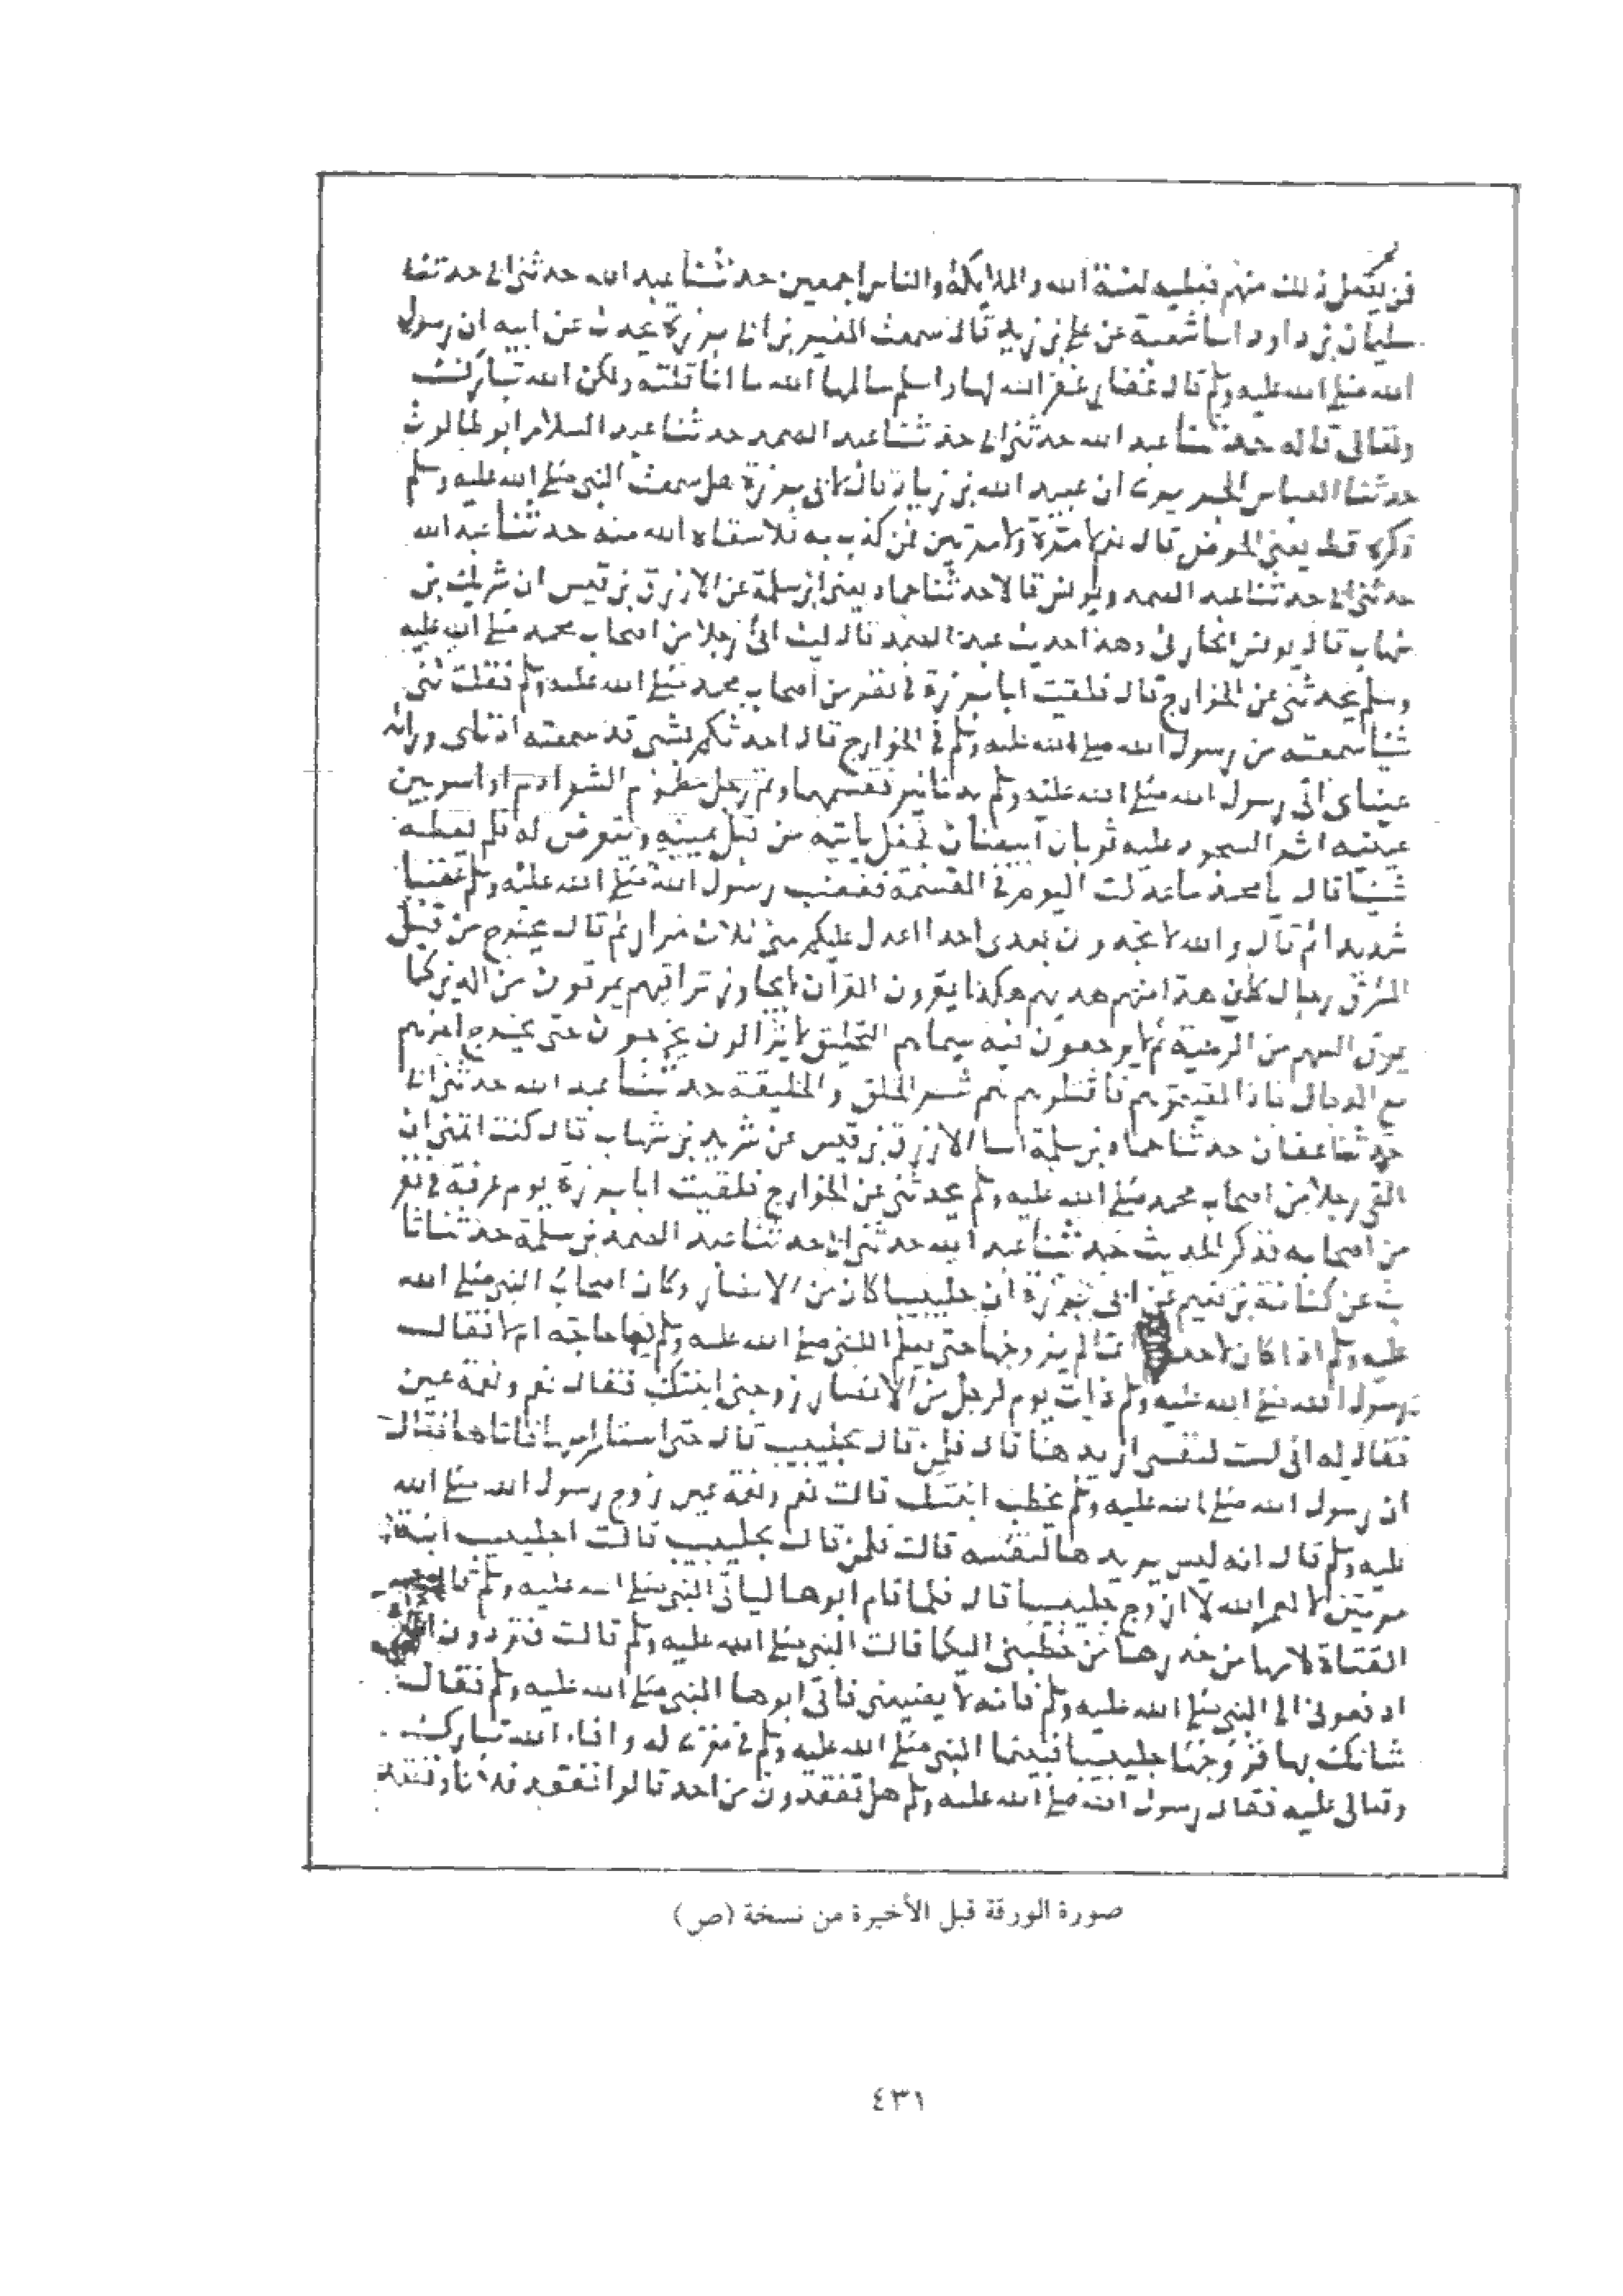 فمن لم يفعل ذلك منهم فعليه لعنة الله والملايكة والناس اجمعين حدثنا عبد الله حدثني ابي حدثنا
سليمان بن داود اسا شعبة عن علي بن زيد قال سمعت المغيرة بن ابي برزة يحدث عن ابيه ان رسول
الله صلى الله عليه وسلم قال غفار غفر الله لها واسلم سالمها الله ما انا قلته ولكن الله تبارك
وتعالى قاله حدثنا عبد الله حدثني ابي حدثنا عبد الصمد حدثنا عبد السلام ابو طالوت
حدثنا العباس الجريري ان عبيد الله بن زياد قال لابي برزة هل سمعت النبي صلى الله عليه وسلم
ذكره قط يعني الحوض قال نعم لا مرة ولا مرتين فمن كذب به فلا سقاه الله منه حدثنا عبد الله
حدثني ابي حدثنا عبد الصمد ويونس قالا حدثنا حماد يعني ابن سلمة عن الازرق بن قيس ان شريك بن
شهاب قال يونس الحارثي وهذا حديث عبد الصمد قال ليت اني رجلا من اصحاب محمد صلى الله عليه
وسلم يحدثني عن الخوارج قال فلقيت ابا برزة في نفر من اصحاب محمد صلى الله عليه وسلم فقلت حدثني
شيا سمعته من رسول الله صلى الله عليه وسلم في الخوارج قال احدثكم بشي قد سمعته اذناي وراته
عيناي اتي رسول الله صلى الله عليه وسلم بدنانير فقسمها وثم رجل مطموم الشعر ادم او اسود بين
عينيه اثر السجود عليه ثوبان ابيضان فجعل ياتيه من قبل يمينه ويتعرض له فلم يعطه
شيا قال يا محمد ما عدلت اليوم في القسمة فغضب رسول الله صلى الله عليه وسلم غضبا
شديدا ثم قال والله لا تجدون بعدي احدا اعدل عليكم مني ثلاث مرار ثم قال يخرج من قبل
المشرق رجال كان هذا منهم هديهم هكذا يقرون القران لا يجاوز تراقيهم يمرقون من الدين كما
يمرق السهم من الرمية ثم لا يرجعون فيه سيماهم التحليق لا يزالون يخرجون حتى يخرج اخرهم
مع الدجال فاذا لقيتموهم فاقتلوهم هم شر الخلق والخليقة حدثنا عبد الله حدثني ابي
حدثنا عفان حدثنا حماد بن سلمة اسا الازرق بن قيس عن شريك بن شهاب قال كنت اتمنى ان
القى رجلا من اصحاب محمد صلى الله عليه وسلم يحدثني عن الخوارج فلقيت ابا برزة يوم عرفة في نفر
من اصحابه فذكر الحديث حدثنا عبد الله حدثني ابي حدثنا عبد الصمد بن سلمة حدثنا ثا
بت عن كنانة بن نعيم عن ابي برزة ان جليبيبا كان من الانصار وكان اصحاب النبي صلى الله
عليه وسلم اذا كان لاحد لم يزوجها حتى يعلم النبي صلى الله عليه وسلم فيها حاجة ام لا فقال
رسول الله صلى الله عليه وسلم ذات يوم لرجل من الانصار زوجني ابنتك فقال نعم ونعمة عين
فقال له اني لست لنفسي اريدها قال فلمن قال لجليبيب قال حتى استامر امها فاتاها فقال
ان رسول الله صلى الله عليه وسلم يخطب ابنتك قالت نعم ونعمة عين زوج رسول الله صلى الله
عليه وسلم قال انه ليس يريدها لنفسه قالت فلمن قال لجليبيب قالت اجليبيب ابنة
مرتين لا لعمر الله لا ازوج جليبيبا قال فلما قام ابوها لياتي النبي صلى الله عليه وسلم قالت
الفتاة لامها من خدرها من خطبني اليكما قالت النبي صلى الله عليه وسلم قالت فتردون
ادفعوني الى النبي صلى الله عليه وسلم فانه لا يضيعني فاتى ابوها النبي صلى الله عليه وسلم فقال
شانك بها فزوجها جليبيبا فبينما النبي صلى الله عليه وسلم في مغزى له وافاء الله تبارك
وتعالى عليه فقال رسول الله صلى الله عليه وسلم هل تفقدون من احد قالوا نفقد فلانا ونفقد
صورة الورقة قبل الأخيرة من نسخة (ص)
٤٣١